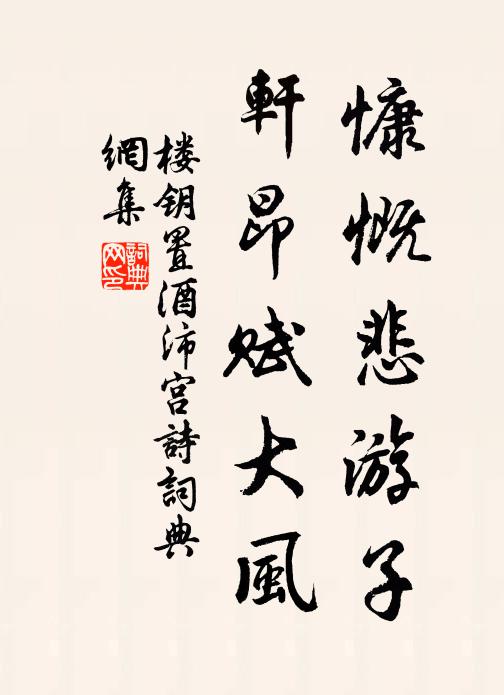 慷慨悲游子
軒昂赋大風
楼钥置酒沛宫詩詞典
網集
詞典
网印